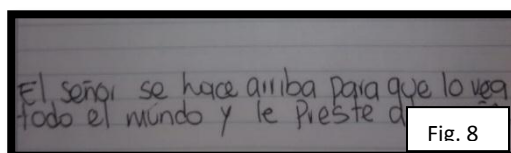 El señor se hace arriba para que lo vea
todo el mundo y le preste
Fig. 8